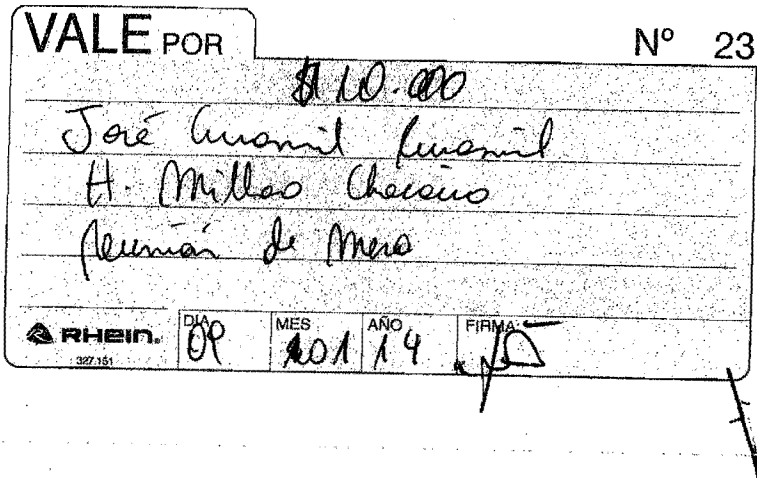 VALE POR
Nº 23
$10.000
José Curamil Curamil
H. Millao Chacaico
Reunión de Mesa
RHEIN.
327.151
DIA MES AÑO FIRMA
09 01 14